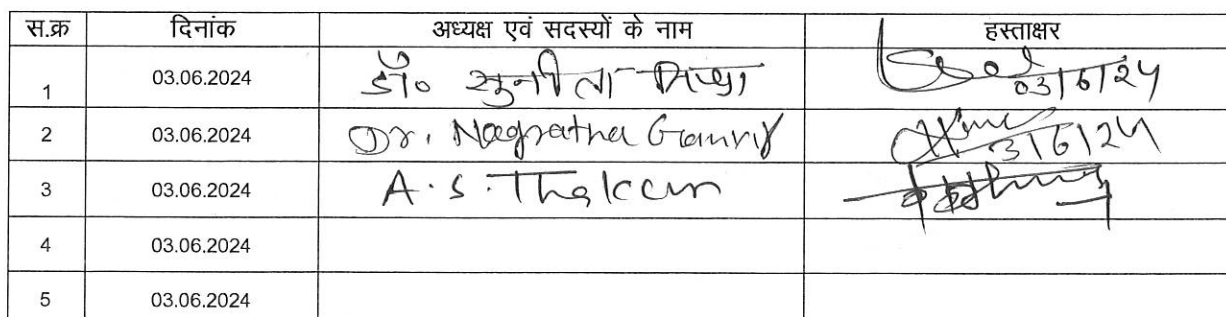 स.क्र दिनांक अध्यक्ष एवं सदस्यों के नाम हस्ताक्षर
1 03.06.2024 डॉ० सुनीता मिश्रा 03/6/24
2 03.06.2024 Dr. Nagratna 3/6/24
3 03.06.2024 A.S. Thakur
4 03.06.2024
5 03.06.2024